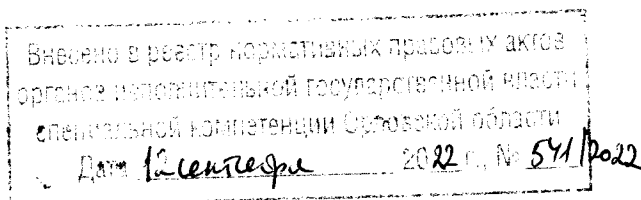 Внесено в реестр нормативных правовых актов
органов исполнительной государственной власти
специальной компетенции Орловской области
Дата 12 сентября 2022 г., № 541/2022